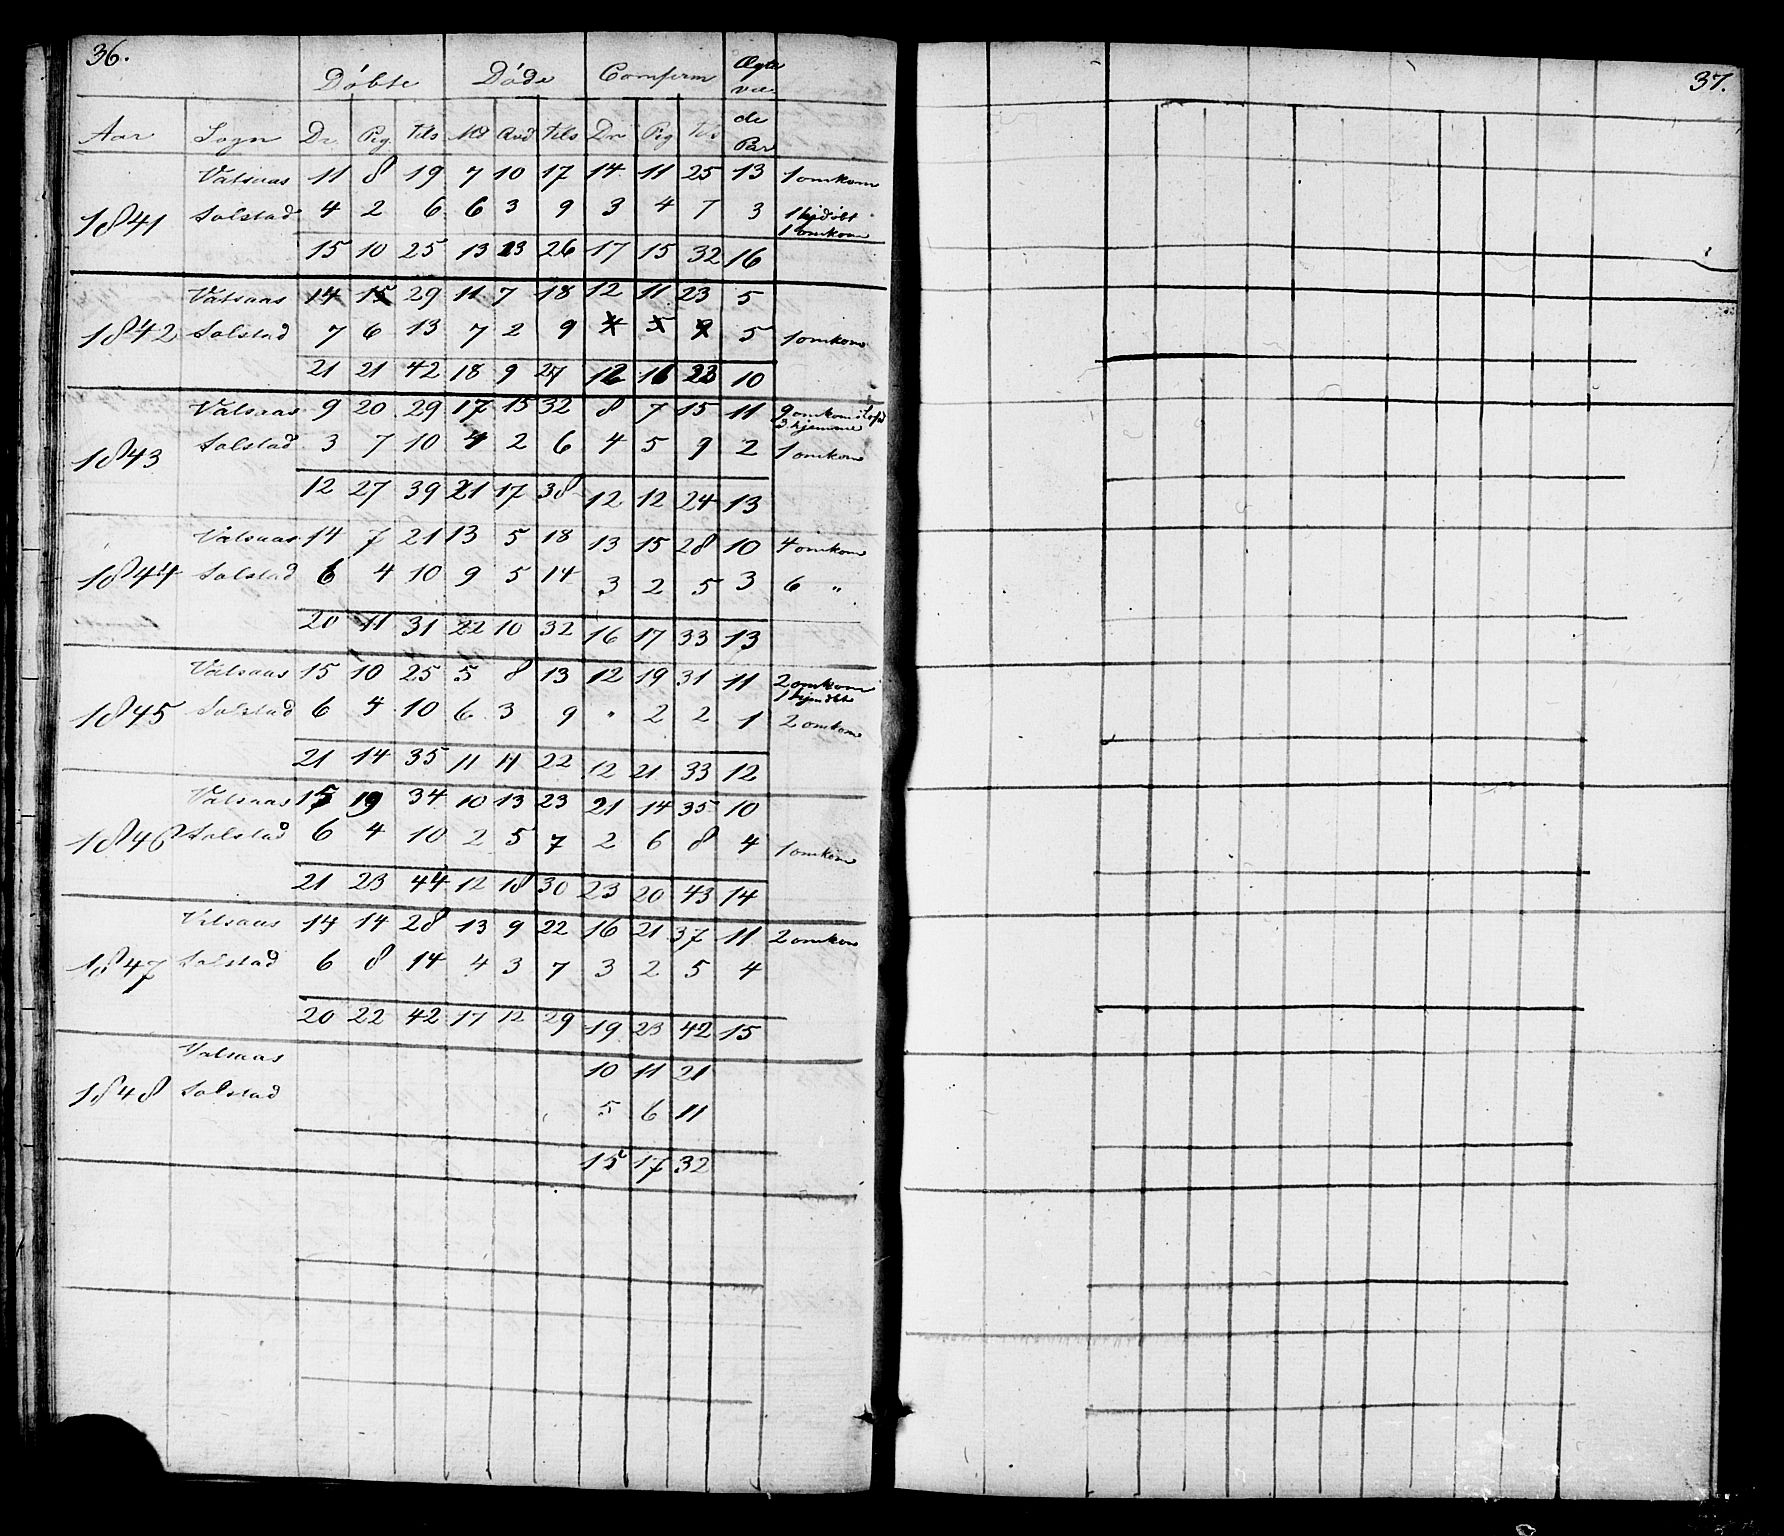 36.
37.
Döbte Döde Comfirm Ægte
vie
de
Aar Sogn Dr. Pig. tils Md Qvd tils Dr Pig Tils Par
Valsaas 11 8 19 7 10 17 14 11 25 13 1 omkom
1841 Solstad 4 2 6 6 3 9 3 4 7 3 1 hjdöbt
1 omkom
15 10 25 13 13 26 17 15 32 16
Valsaas 14 15 29 11 7 18 12 11 23 5
1842 Solstad 7 6 13 7 2 9 4 5 9 5 1 omkom
21 21 42 18 9 27 12 11 23 10
Valsaas 9 20 29 17 15 32 8 7 15 11 9 omkom i Lofd
2 hjemme
1843 Solstad 3 7 10 4 2 6 4 5 9 2 1 omkom
12 27 39 21 17 38 12 12 24 13
Valsaas 14 7 21 13 5 18 13 15 28 10 4 omkom
1844 Solstad 6 4 10 9 5 14 3 2 5 3 6 "
20 11 31 22 10 32 16 17 33 13
Valsaas 15 10 25 5 8 13 12 19 31 11 2 omkom
1 hjmdöbt
1845 Solstad 6 4 10 6 3 9 " 2 2 1 2 omkom
21 14 35 11 11 22 12 21 33 12
Valsaas 15 19 34 10 13 23 21 14 35 10
1846 Solstad 6 4 10 2 5 7 2 6 8 4 1 omkom
21 23 44 12 18 30 23 20 43 14
Valsaas 14 14 28 13 9 22 16 21 37 11 2 omkom
1847 Solstad 6 8 14 4 3 7 3 2 5 4
20 22 42 17 12 29 19 23 42 15
Valsaas 10 11 21
1848 Solstad 5 6 11
15 17 32